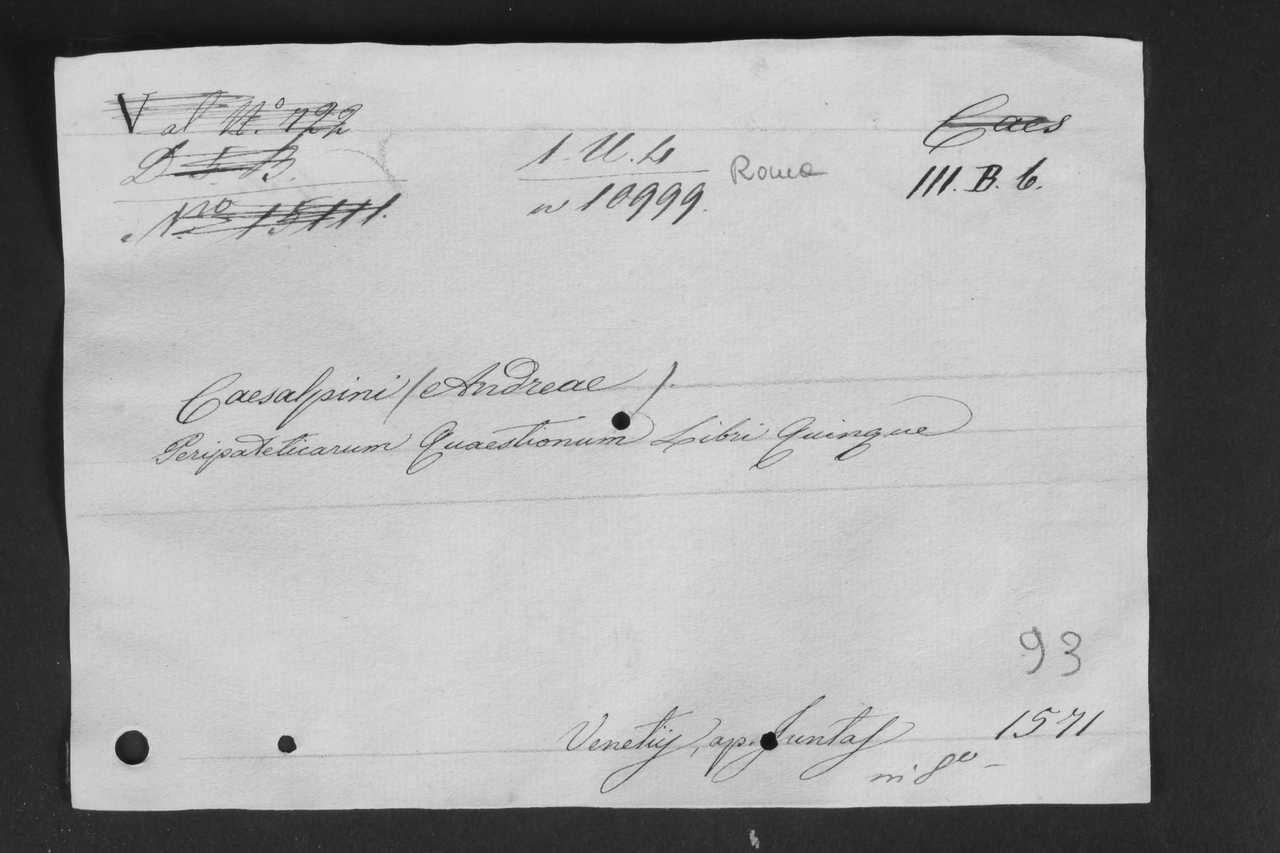 V al N.º 722
D. 5. B.
Nro 15111.
1. U. 4
n 10999.
Roma
Caes
III. B. 6.
Caesalpini (Andreae).
Peripateticarum Quaestionum Libri Quinque
93
Venetijs, ap. Juntas 1571
in 8º -